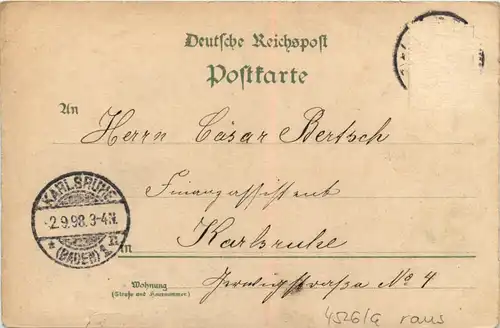 Deutsche Reichspost
Postkarte
An Herrn Cäsar Bertsch
Finanzassistent
in Karlsruhe
Wohnung
(Straße und Hausnummer)
straße No 4
KARLSRUHE
2.9.98.3-4N.
(BADEN) 1
4526/9 raus